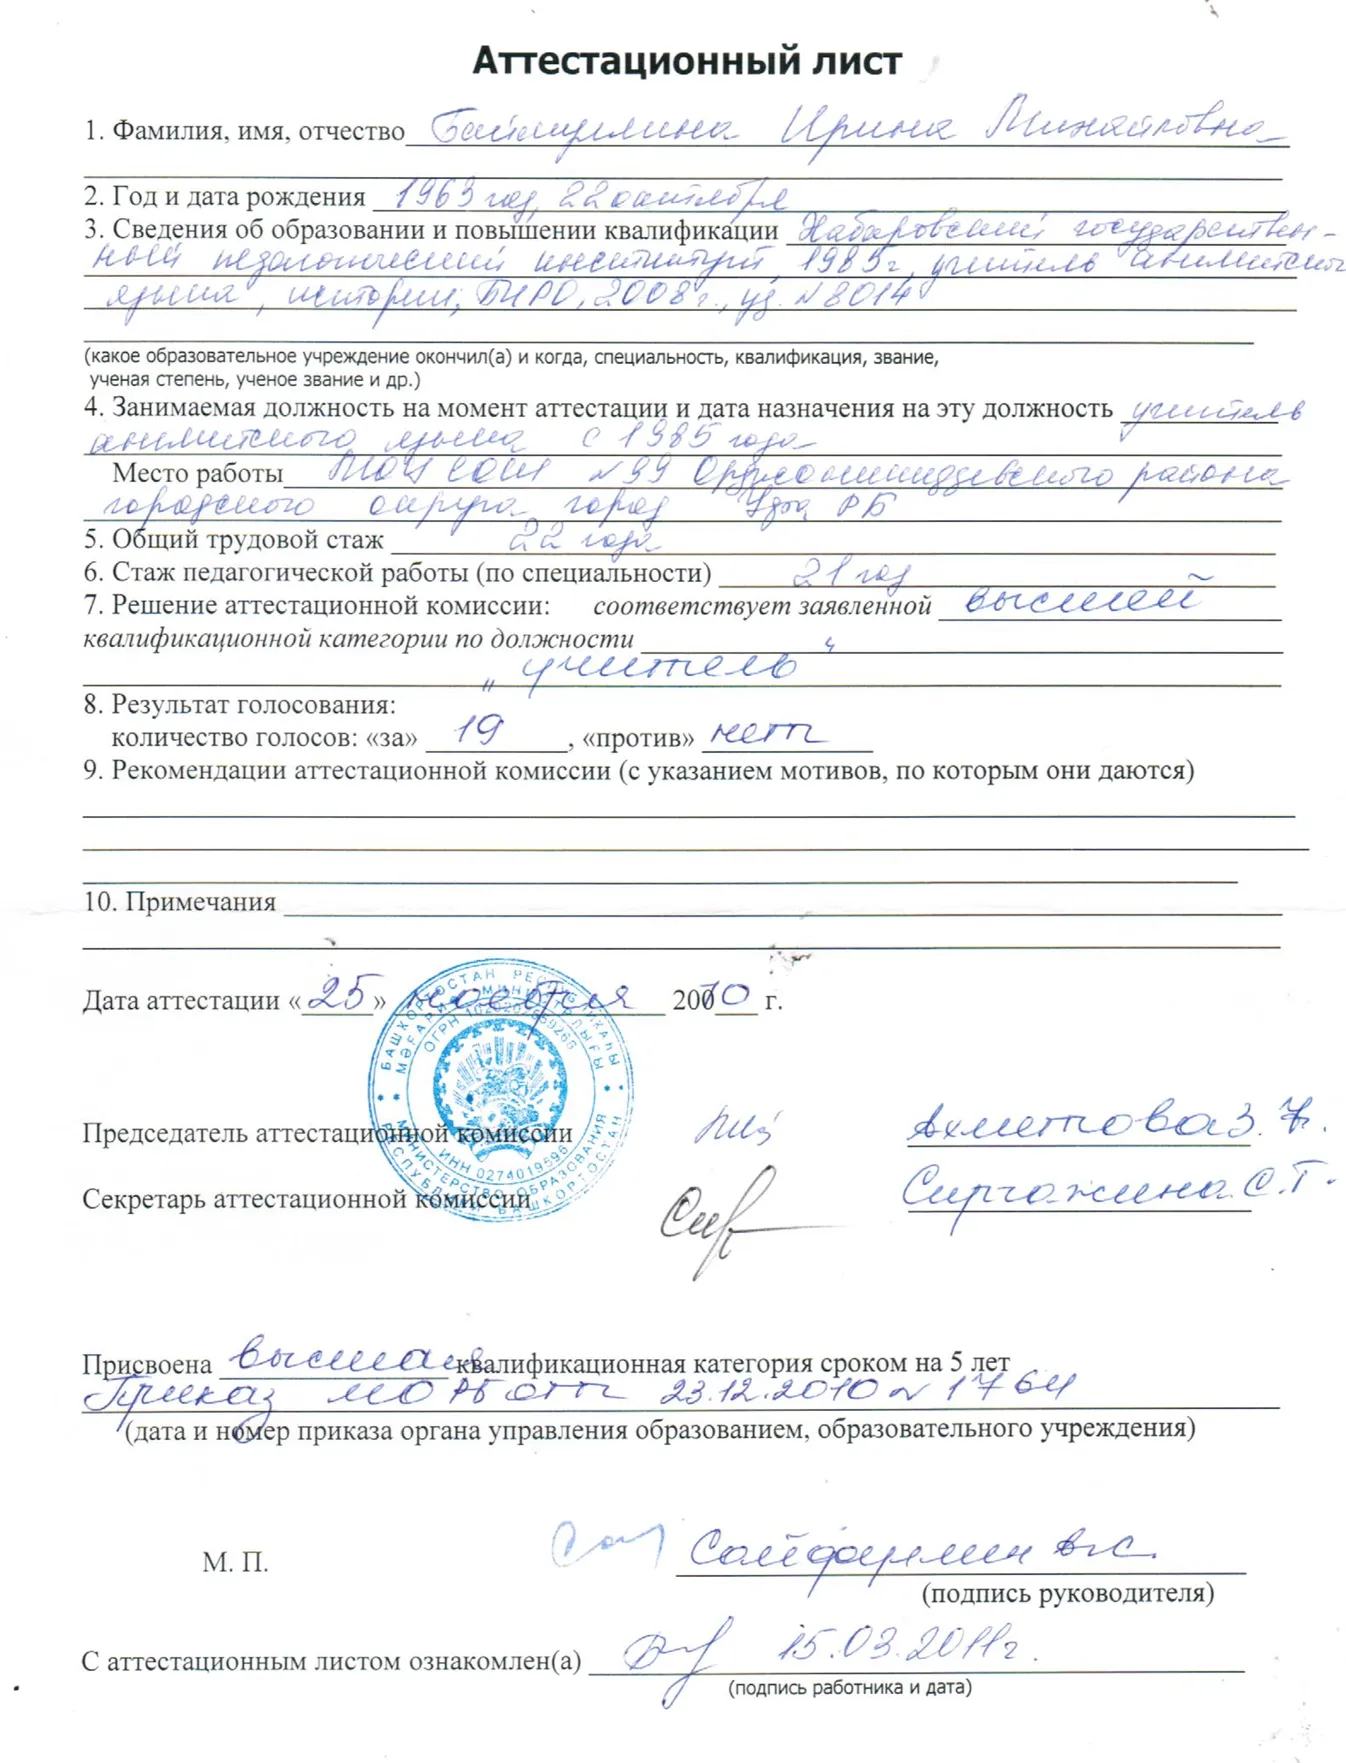 Аттестационный лист
1. Фамилия, имя, отчество Баймурзина Ирина Михайловна
2. Год и дата рождения 1963 год, 22 октября
3. Сведения об образовании и повышении квалификации Хабаровский государствен-
ный педагогический институт, 1985г, учитель английского
языка, истории; БИРО, 2008г., уд. №8014
(какое образовательное учреждение окончил(а) и когда, специальность, квалификация, звание,
ученая степень, ученое звание и др.)
4. Занимаемая должность на момент аттестации и дата назначения на эту должность учитель
английского языка с 1985 года
Место работы МОУ СОШ №99 Орджоникидзевского района
городского округа город Уфа РБ
5. Общий трудовой стаж 22 года
6. Стаж педагогической работы (по специальности) 21 год
7. Решение аттестационной комиссии: соответствует заявленной высшей
квалификационной категории по должности
"учитель"
8. Результат голосования:
количество голосов: «за» 19, «против» нет
9. Рекомендации аттестационной комиссии (с указанием мотивов, по которым они даются)
10. Примечания
Дата аттестации «25» ноября 20010 г.
БАШҠОРТОСТАН РЕСПУБЛИКАҺЫ
МӘҒАРИФ МИНИСТРЛЫҒЫ
ОГРН
ИНН 0274019596
МИНИСТЕРСТВО ОБРАЗОВАНИЯ
РЕСПУБЛИКИ БАШКОРТОСТАН
Председатель аттестационной комиссии Ахметова З.
Секретарь аттестационной комиссии С.Г.
Присвоена высшая квалификационная категория сроком на 5 лет
Приказ МО РБ от 23.12.2010 №
(дата и номер приказа органа управления образованием, образовательного учреждения)
М. П.
(подпись руководителя)
С аттестационным листом ознакомлен(а) 15.03.2011г.
(подпись работника и дата)